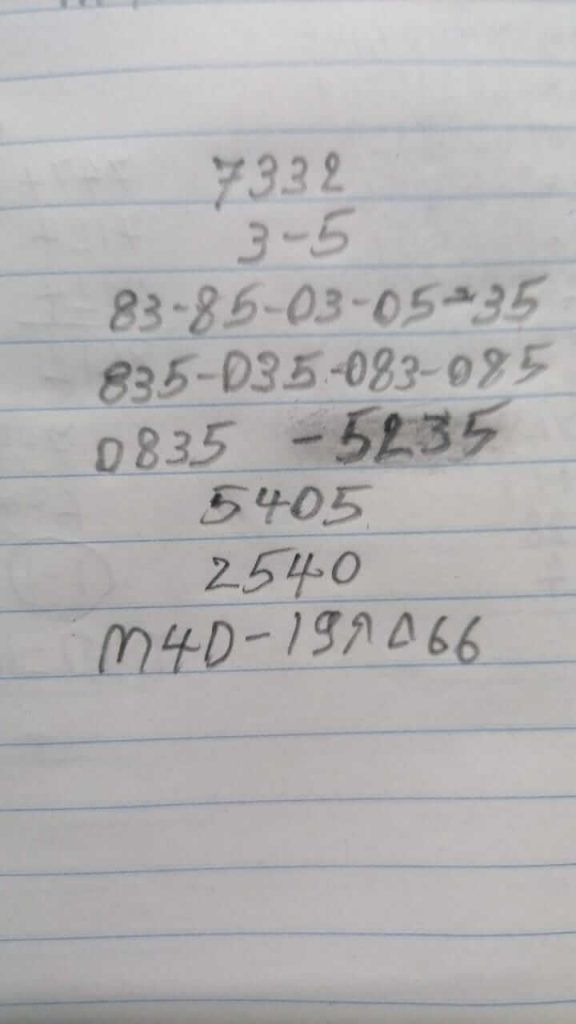 7332
3-5
83-85-03-05-35
835-035-083-085
0835 -5235
5405
2540
M4D-19